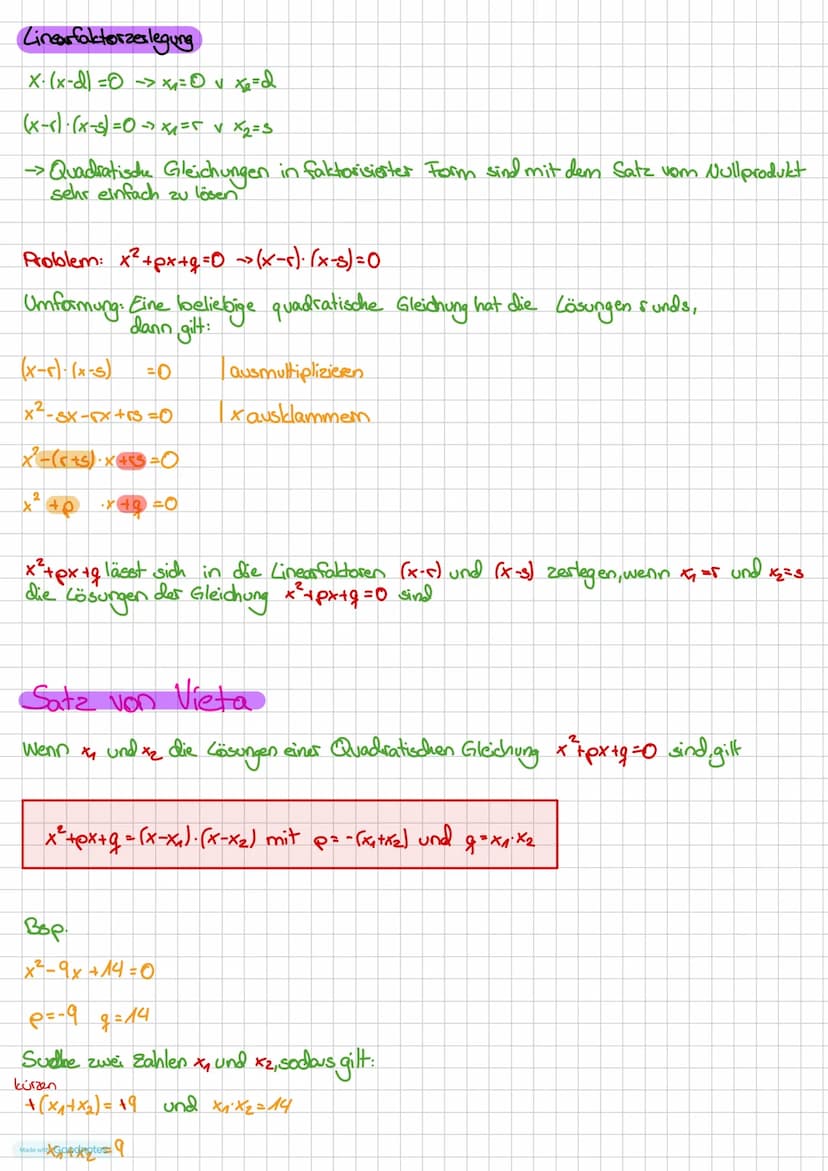 Linearfaktorzerlegung
x·(x-d)=0 -> x₁=0 v x₂=d
(x-r)·(x-s)=0 -> x₁=r v x₂=s
-> Quadratische Gleichungen in faktorisierter Form sind mit dem Satz vom Nullprodukt
sehr einfach zu lösen
Problem: x²+px+q=0 -> (x-r)·(x-s)=0
Umformung: Eine beliebige quadratische Gleichung hat die Lösungen r und s,
dann gilt:
(x-r)·(x-s) =0 | ausmultiplizieren
x²-sx-rx+rs=0 | x ausklammern
x²-(r+s)·x+rs=0
x² +p ·x +q =0
x²+px+q lässt sich in die Linearfaktoren (x-r) und (x-s) zerlegen, wenn x₁=r und x₂=s
die Lösungen der Gleichung x²+px+q=0 sind
Satz von Vieta
Wenn x₁ und x₂ die Lösungen einer Quadratischen Gleichung x²+px+q=0 sind, gilt
x²+px+q=(x-x₁)·(x-x₂) mit p=-(x₁+x₂) und q=x₁·x₂
Bsp.
x²-9x+14=0
p=-9 q=14
Suche zwei Zahlen x₁ und x₂, sodass gilt:
kürzen
+(x₁+x₂)=+9 und x₁·x₂=14
x₁+x₂=9
Made with Goodnotes